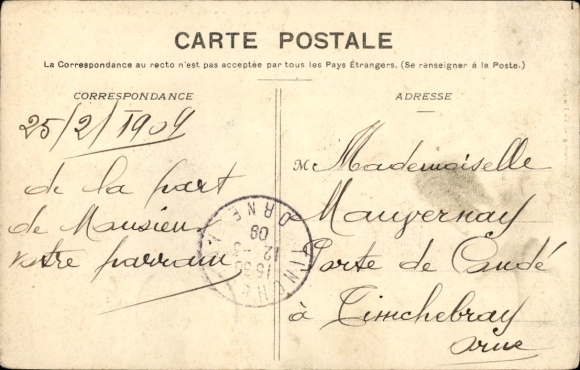 CARTE POSTALE
La Correspondance au recto n'est pas acceptée par tous les Pays Étrangers. (Se renseigner à la Poste.)
CORRESPONDANCE
25/2/1909
de la part
de Monsieur
votre parrain
ADRESSE
M Mademoiselle
Mauvernay
Porte de Condé
à Tinchebray
Orne
TINCHEBRAY
ORNE
15 30
12 - 3
09